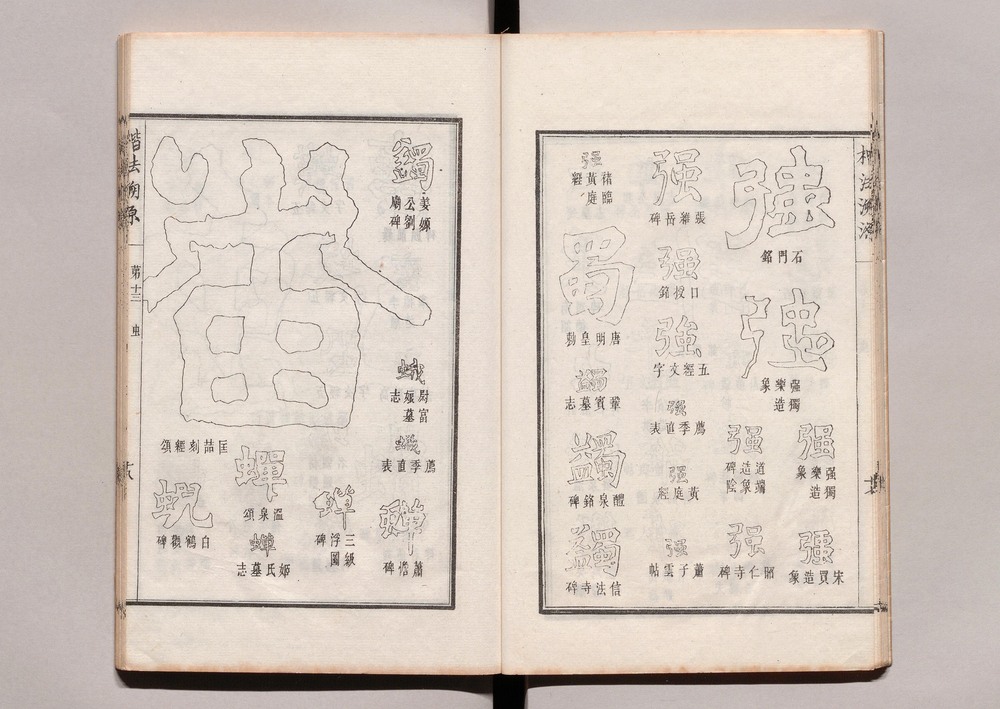 強
石門銘
強
強獨樂造象
强
强獨樂造象
强
道端造象碑陰
强
宋買造象
强
昭仁寺碑
强
張維岳碑
强
口授銘
強
五經文字
强
薦季直表
强
黃庭經
强
蕭子雲帖
强
褚臨黃庭經
蜀
唐明皇勅
蠲
鞏賓墓志
蠲
醴泉銘碑
蠲
信法寺碑
蠲
姜嫄公劉廟碑
蛾
尉富娘墓志
蛾
薦季直表
蟬
蕭憺碑
匡喆刻經頌
蟬
三級浮圖碑
蟬
溫泉頌
蟬
姬氏墓志
蜺
白鶴觀碑
楷法溯原
弟十三
虫